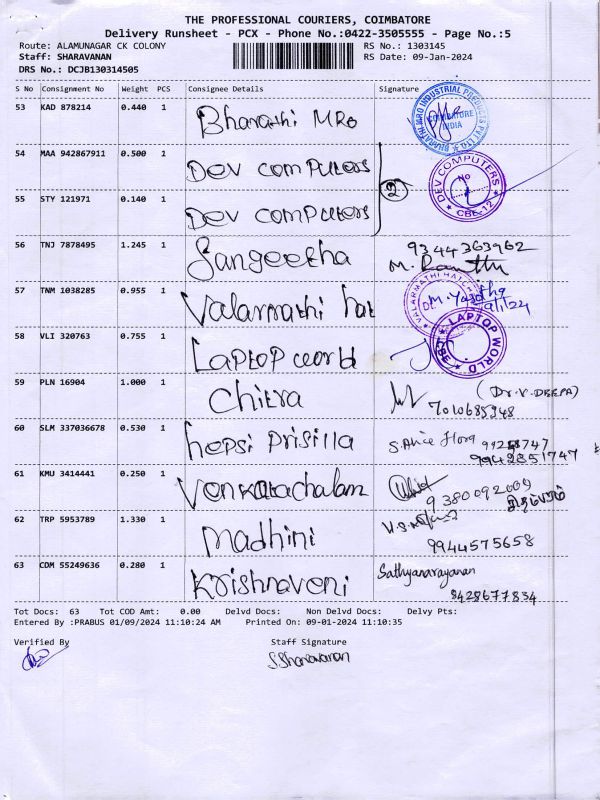 THE PROFESSIONAL COURIERS, COIMBATORE
Delivery Runsheet - PCX - Phone No.:0422-3505555 - Page No.:5
Route: ALAMUNAGAR CK COLONY RS No.: 1303145
Staff: SHARAVANAN RS Date: 09-Jan-2024
DRS No.: DCJB130314505
S No Consignment No Weight PCS Consignee Details Signature
53 KAD 878214 0.440 1 Bharathi MRO
COIMBATORE
INDIA
54 MAA 942867911 0.500 1 Dev computers
2
DEV COMPUTERS
CBE-12
55 STY 121971 0.140 1 Dev computers
56 TNJ 7878495 1.245 1 Sangeetha 9344363962
57 TNM 1038285 0.955 1 Valarmathi hat
9/1/24
58 VLI 320763 0.755 1 Laptop world
LAPTOP WORLD
CBE
59 PLN 16904 1.000 1 Chitra (Dr.V.DEEPA)
60 SLM 337036678 0.530 1 hepsi prisilla
9942351747
61 KMU 3414441 0.250 1 Venkatachalam
9380092009
62 TRP 5953789 1.330 1 Madhini
9944575658
63 CDM 55249636 0.280 1 Krishnaveni Sathyanarayanan
9428677834
Tot Docs: 63 Tot COD Amt: 0.00 Delvd Docs: Non Delvd Docs: Delvy Pts:
Entered By :PRABUS 01/09/2024 11:10:24 AM Printed On: 09-01-2024 11:10:35
Verified By Staff Signature
S.Sharavanan